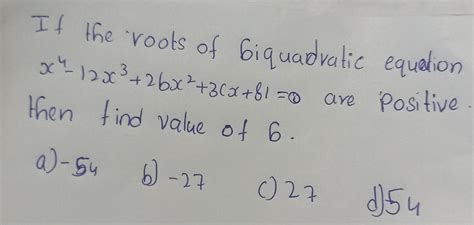 If the roots of biquadratic equation
x⁴-12x³+2bx²+3cx+81=0 are positive
then find value of b.
a)-54 b) -27 c) 27 d) 54